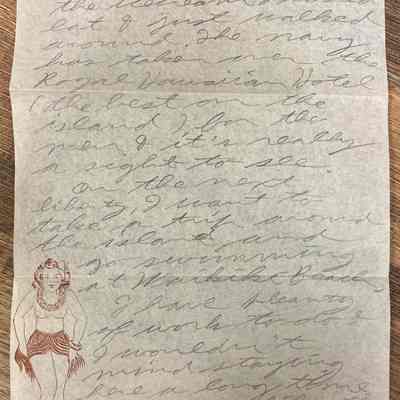 the
lot & I just walked
around. The navy
has taken over the
Royal Hawaiian Hotel
(the best on the
island) for the
men & it's really
a sight to see.
On the next
liberty, I want to
take a trip around
the island and
go swimming
at Waikiki Beach
I have plenty
of work to do &
I wouldn't
mind staying
here a long time